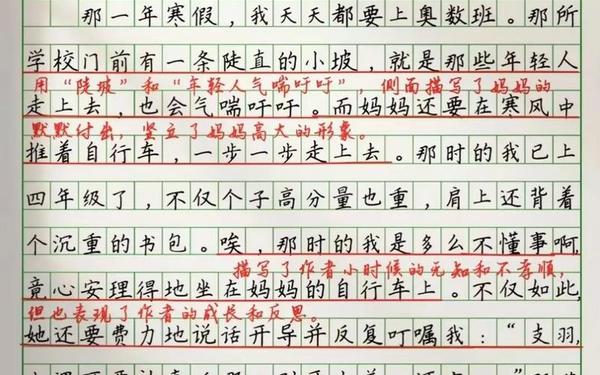 那一年寒假,我天天都要上奥数班。那所
学校门前有一条陡直的小坡,就是那些年轻人
用“陡坡”和“年轻人气喘吁吁”,侧面描写了妈妈的
走上去,也会气喘吁吁。而妈妈还要在寒风中
默默付出,竖立了妈妈高大的形象。
推着自行车,一步一步走上去。那时的我已上
四年级了,不仅个子高分量也重,肩上还背着
个沉重的书包。唉,那时的我是多么不懂事啊,
描写了作者小时候的无知和不孝顺,
竟心安理得地坐在妈妈的自行车上。不仅如此,
但也表现了作者的成长和反思。
她还要费力地说话开导并反复叮嘱我:“支羽,